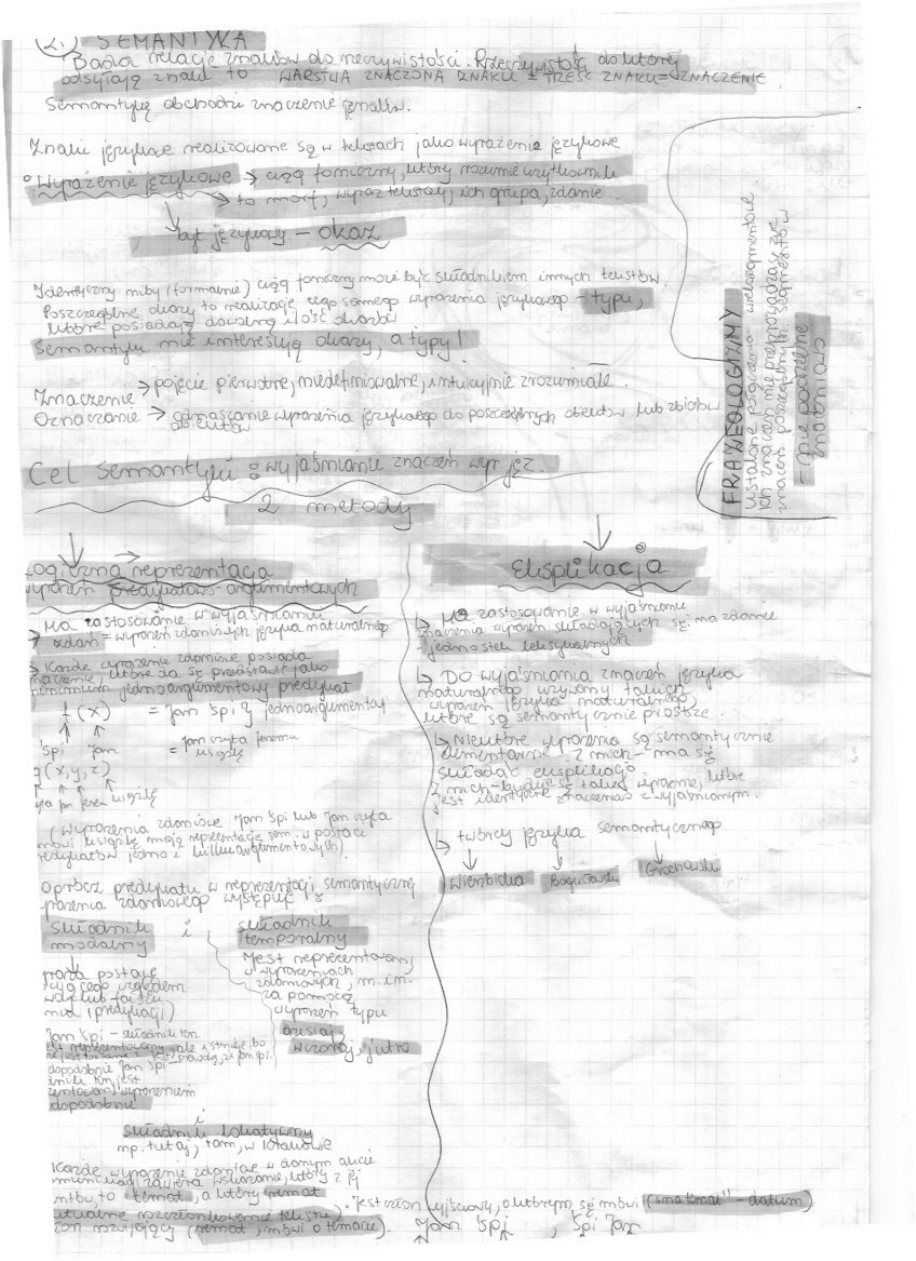 2. SEMANTYKA
Bada relacje znaków do rzeczywistości. Rzeczywistość do której
odsyłają znaki to WARSTWA ZNACZONA ZNAKU = TREŚĆ ZNAKU = ZNACZENIE
Semantykę obchodzi znaczenie znaków.
Znaki językowe realizowane są w tekstach jako wyrażenie językowe
Wyrażenie językowe → ciąg foniczny, który rozumie użytkownik
→ to morf, wyraz tekstowy, ich grupa, zdanie.
byt językowy - okaz
Identyczny niby (formalnie) ciąg foniczny może być składnikiem innych tekstów
Poszczególne okazy to realizacje tego samego wyrażenia językowego - typu,
które posiadają dowolną ilość okazów
Semantyki nie interesują okazy, a typy!
Znaczenie → pojęcie pierwotne, niedefiniowalne, intuicyjnie zrozumiałe.
Oznaczanie → odnoszenie wyrażenia językowego do poszczególnych obiektów lub zbiorów
obiektów
FRAZEOLOGIZMY
ustalone połączenia wielosegmentowe.
Ich znaczeń nie przeprowadzasz ze
znaczeń poszczególnych segmentów
= nie podzielne
znaniowo
Cel semantyki: wyjaśnianie znaczeń wyr. jęz.
2 metody
Logiczna reprezentacja
wyrażeń predykatowo-argumentowych
→ Ma zastosowanie w wyjaśnianiu
→ zdań = wyrażeń zdaniowych języka naturalnego
→ Każde wyrażenie zdaniowe posiada
znaczenie, które da się przedstawić jako
minimum jednoargumentowy predykat
f(x) = Jan śpi } jednoargumentowy
śpi Jan = Jan czyta Jerzemu
książkę
(x,y,z)
Jan książkę
(Wyrażenia zdaniowe Jan śpi lub Jan czyta
książkę mają reprezentację sem. w postaci
predykatów jedno i kilkuargumentowych)
Oprócz predykatu w reprezentacji semantycznej
zdaniowego występuje:
składnik
modalny
i
składnik
temporalny
Jest reprezentowany
w wyrażeniach
zdaniowych, m.in.
za pomocą
wyrażeń typu
dzisiaj
wczoraj, jutro
postawę
względem
lub fałszu
(predykacji)
Jan śpi - składnik ten
ale istnieje, bo
Jan śpi
jest
wyrażeniem
i
składnik lokatywny
np. tutaj, tam, w Krakowie
Każde wyrażenie zdaniowe w danym akcie
zawiera wskazanie, który z jej
to temat, a który remat
rozczłonkowanie tekstu. Jest człon wyjściowy, o którym się mówi ("na temat" - datum)
rozwijający (remat, mówi o temacie). Jan śpi, Śpi Jan
Eksplikacja
↳ Ma zastosowanie w wyjaśnianiu
znaczenia wyrażeń składających się na zdanie
- jednostek leksykalnych
↳ Do wyjaśniania znaczeń języka
naturalnego używamy takich
wyrażeń języka naturalnego,
które są semantycznie prostsze.
↳ Niektóre wyrażenia są semantycznie
elementarne. Z nich - ma się
składać eksplikacja
Z nich buduje się takie wyrażenie, które
jest identyczne znaczeniowo z wyjaśnianym.
↳ twórcy języka semantycznego
Wierzbicka Bogusławski Grochowski